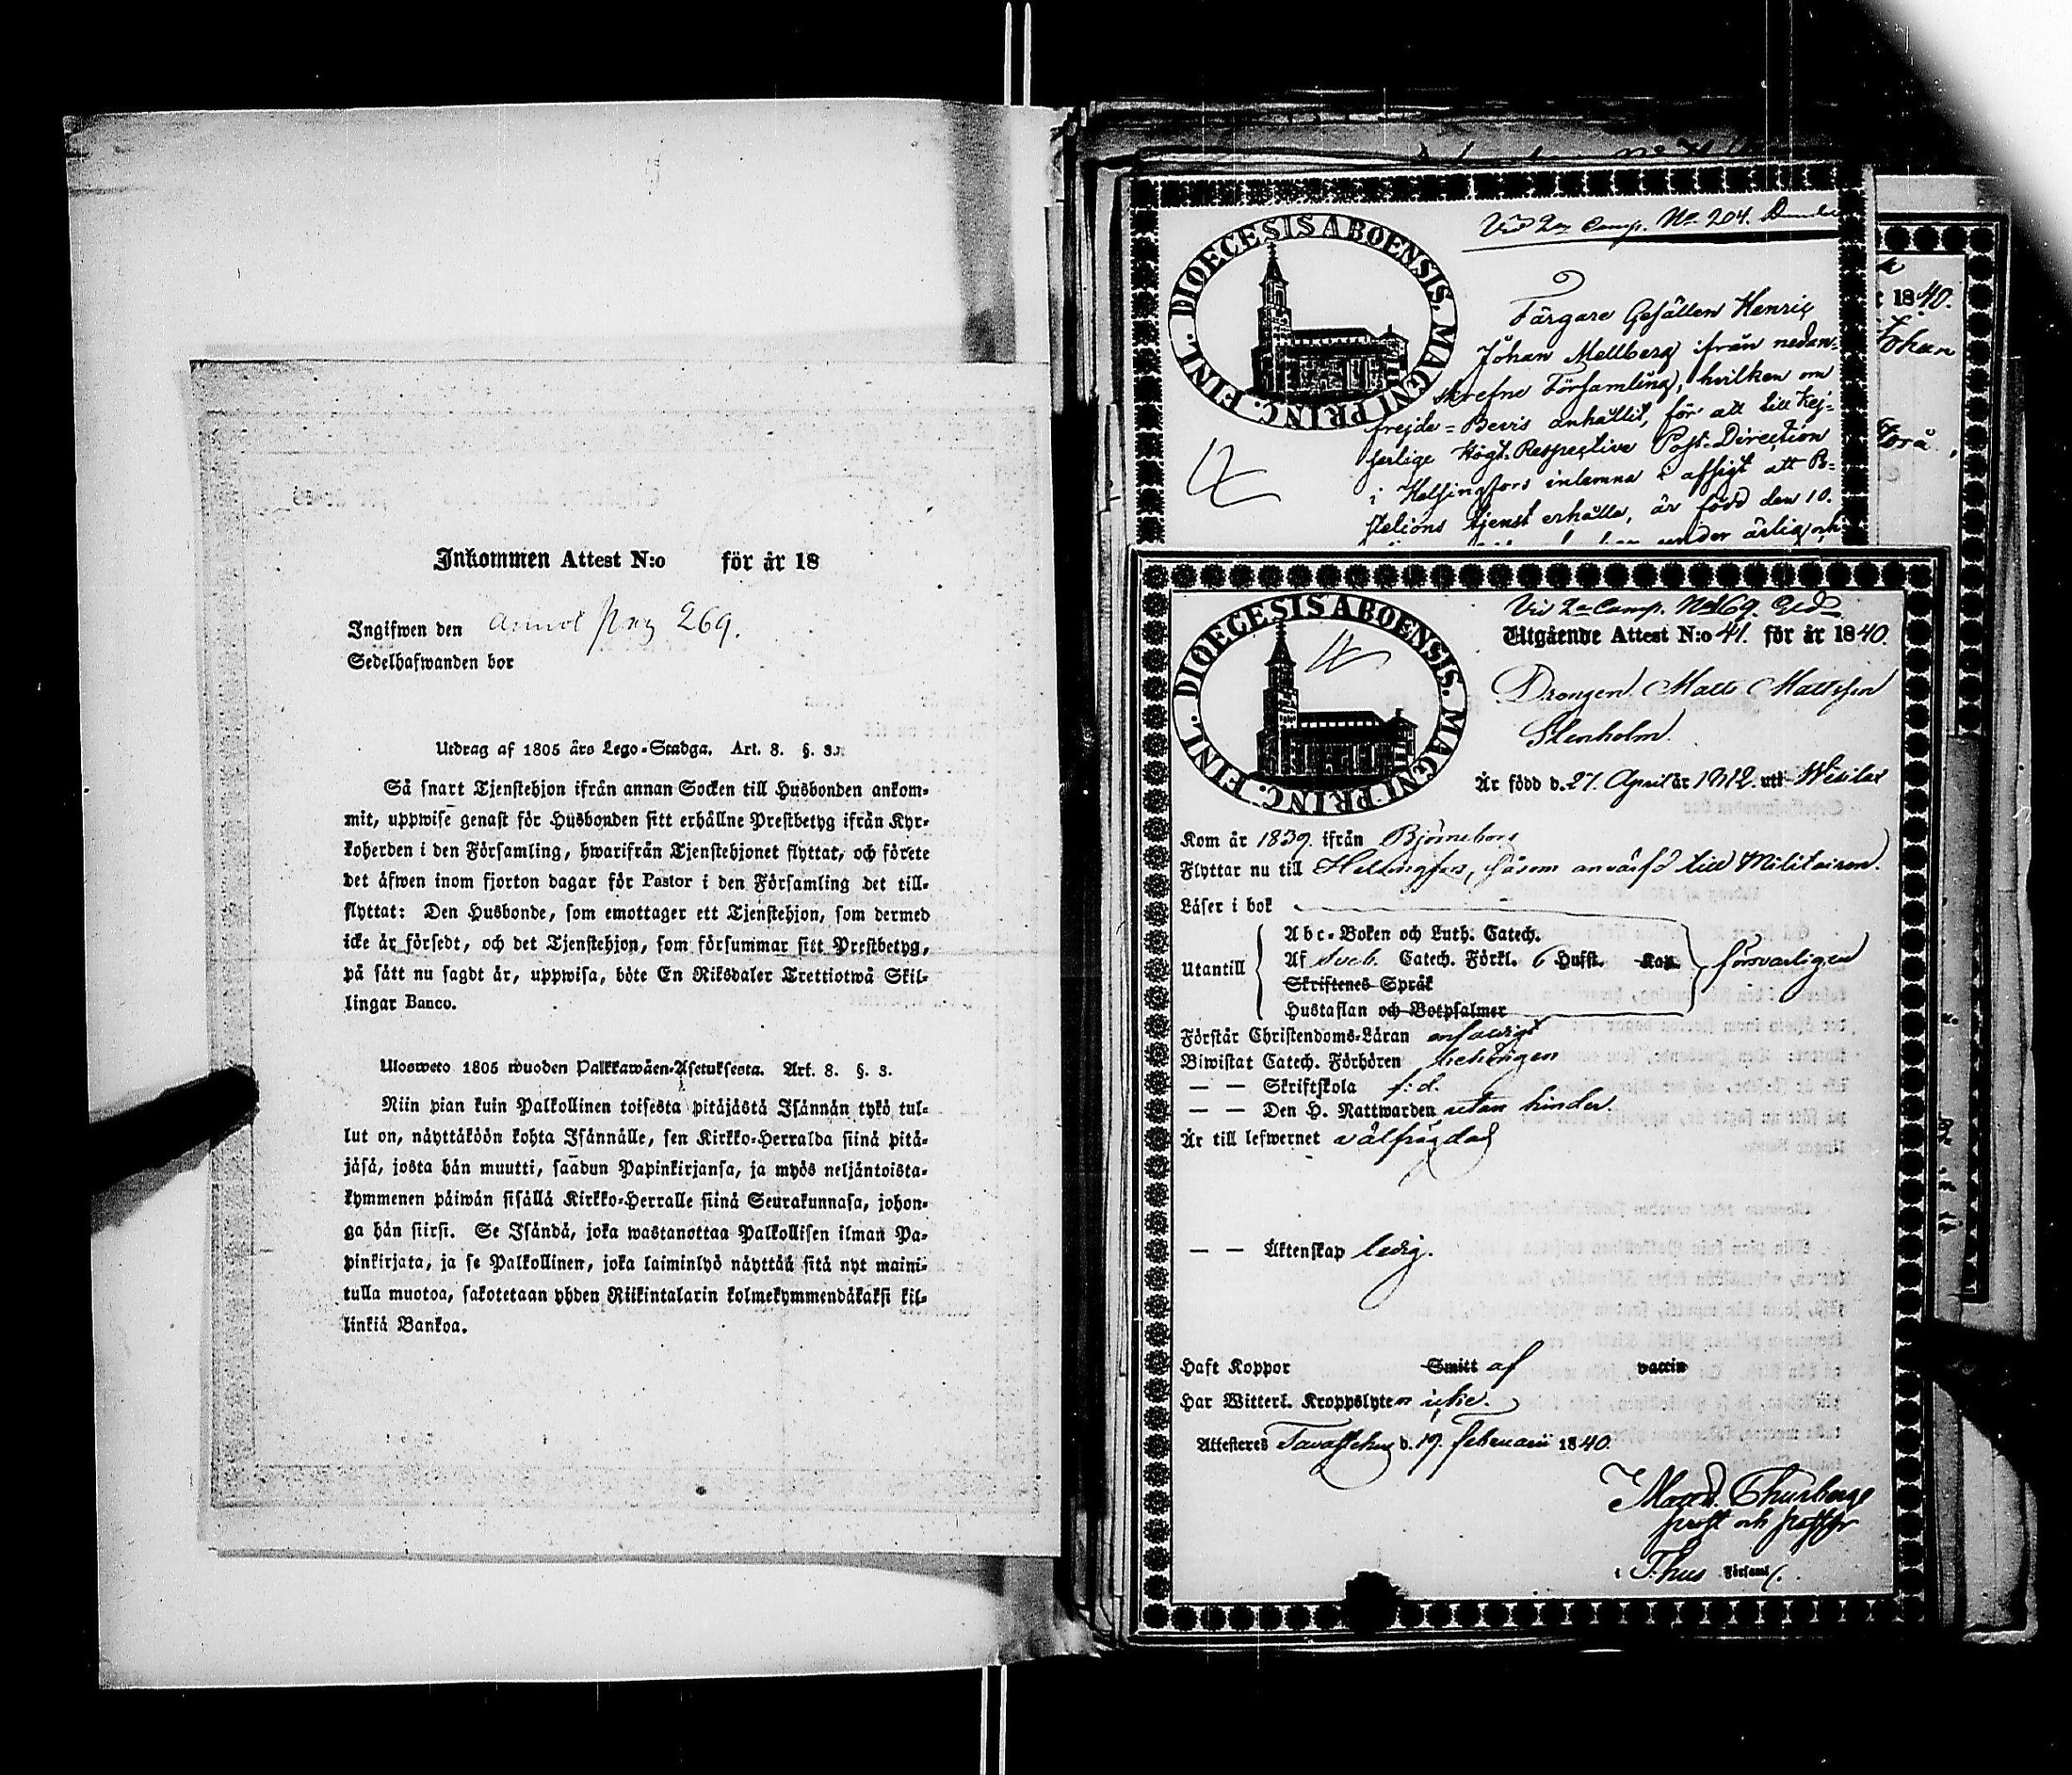 Inkommen Attest N:o för år 18
Ingifwen den annot pag 269.
Sedelhafwanden bor
Utdrag af 1805 års Lego-Stadga. Art. 8. §. 3.
Så snart Tjenstehjon ifrån annan Socken till Husbonden ankom-
mit, uppwise genast för Husbonden sitt erhållne Prestbetyg ifrån Kyr-
koherden i den Församling, hwarifrån Tjenstehjonet flyttat, och förete
det äfwen inom fjorton dagar för Pastor i den Församling det till-
flyttat: Den Husbonde, som emottager ett Tjenstehjon, som dermed
icke är försedt, och det Tjenstehjon, som försummar sitt Prestbetyg,
på sätt nu sagdt är, uppwisa, böte En Riksdaler Trettiotwå Skil-
lingar Banco.
Ulosweto 1805 wuoden Palkkawäen-Asetuksesta. Art. 8. §. 3.
Niin pian kuin Palkollinen toisesta pitäjästä Isännän tykö tul-
lut on, näyttäköön kohta Isännälle, sen Kirkko-Herralda siinä pitä-
jäsä, josta hän muutti, saadun Papinkirjansa, ja myös neljäntoista-
kymmenen päiwän sisällä Kirkko-Herralle siinä Seurakunnasa, johon-
ga hän siirsi. Se Isändä, joka wastanottaa Palkollisen ilman Pa-
pinkirjata, ja se Palkollinen, joka laiminlyö näyttää sitä nyt maini-
tulla muotoa, sakotetaan yhden Riikintalarin kolmekymmendäkaksi kil-
linkiä Bankoa.
Vid 2a Comp. No 204.
DIOECESIS ABOENSIS. MAGNI PRINC. FINL.
Färgare Gesällen Henric
Johan Mellberg ifrån nedan-
skrefne Församling, hvilken om
frejde-Bevis anhållit, för att till Kej-
serlige Högt-Respective Post-Direction
i Helsingfors inlemna i afsigt att Po-
stelions tjenst erhålla, är född den 10.
under ärlig och
18 40.
Johan
Vid 2a Comp. No 269.
DIOECESIS ABOENSIS. MAGNI PRINC. FINL.
Utgående Attest N:o 41. för år 1840.
Drängen Matts Mattsson
Stenholm.
Är född d. 27. April år 1812. uti Wesilax
Kom år 1839. ifrån Björneborg
Flyttar nu till Helsingfors, såsom anvärfd till Militairen.
Läser i bok
Utantill
Abc-Boken och Luth. Catech.
Af Sveb. Catech. Förkl. 6 Hufst. Kap.
Skriftenes Språk
Hustaflan och Botpsalmer
försvarligen
Förstår Christendoms-Läran enfaldigt
Biwistat Catech. Förhören behörigen
— — Skriftskola f: d.
— — Den H. Nattwarden utan hinder.
Är till lefwernet välfrägdad
— — Äktenskap ledig.
Haft Koppor Smitt af vaccin
Har Witterl. Kroppslyten icke.
Attesteres Tavastehus d. 19. februarii 1840.
Thurberge
prost och pastor
i T:hus Församl.